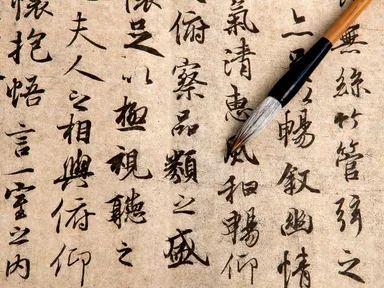 無絲竹管弦之
暢叙幽情
氣清惠風和暢仰
俯察品類之盛
懷足以極視聽之
夫人之相與俯仰
懷抱悟言一室之內